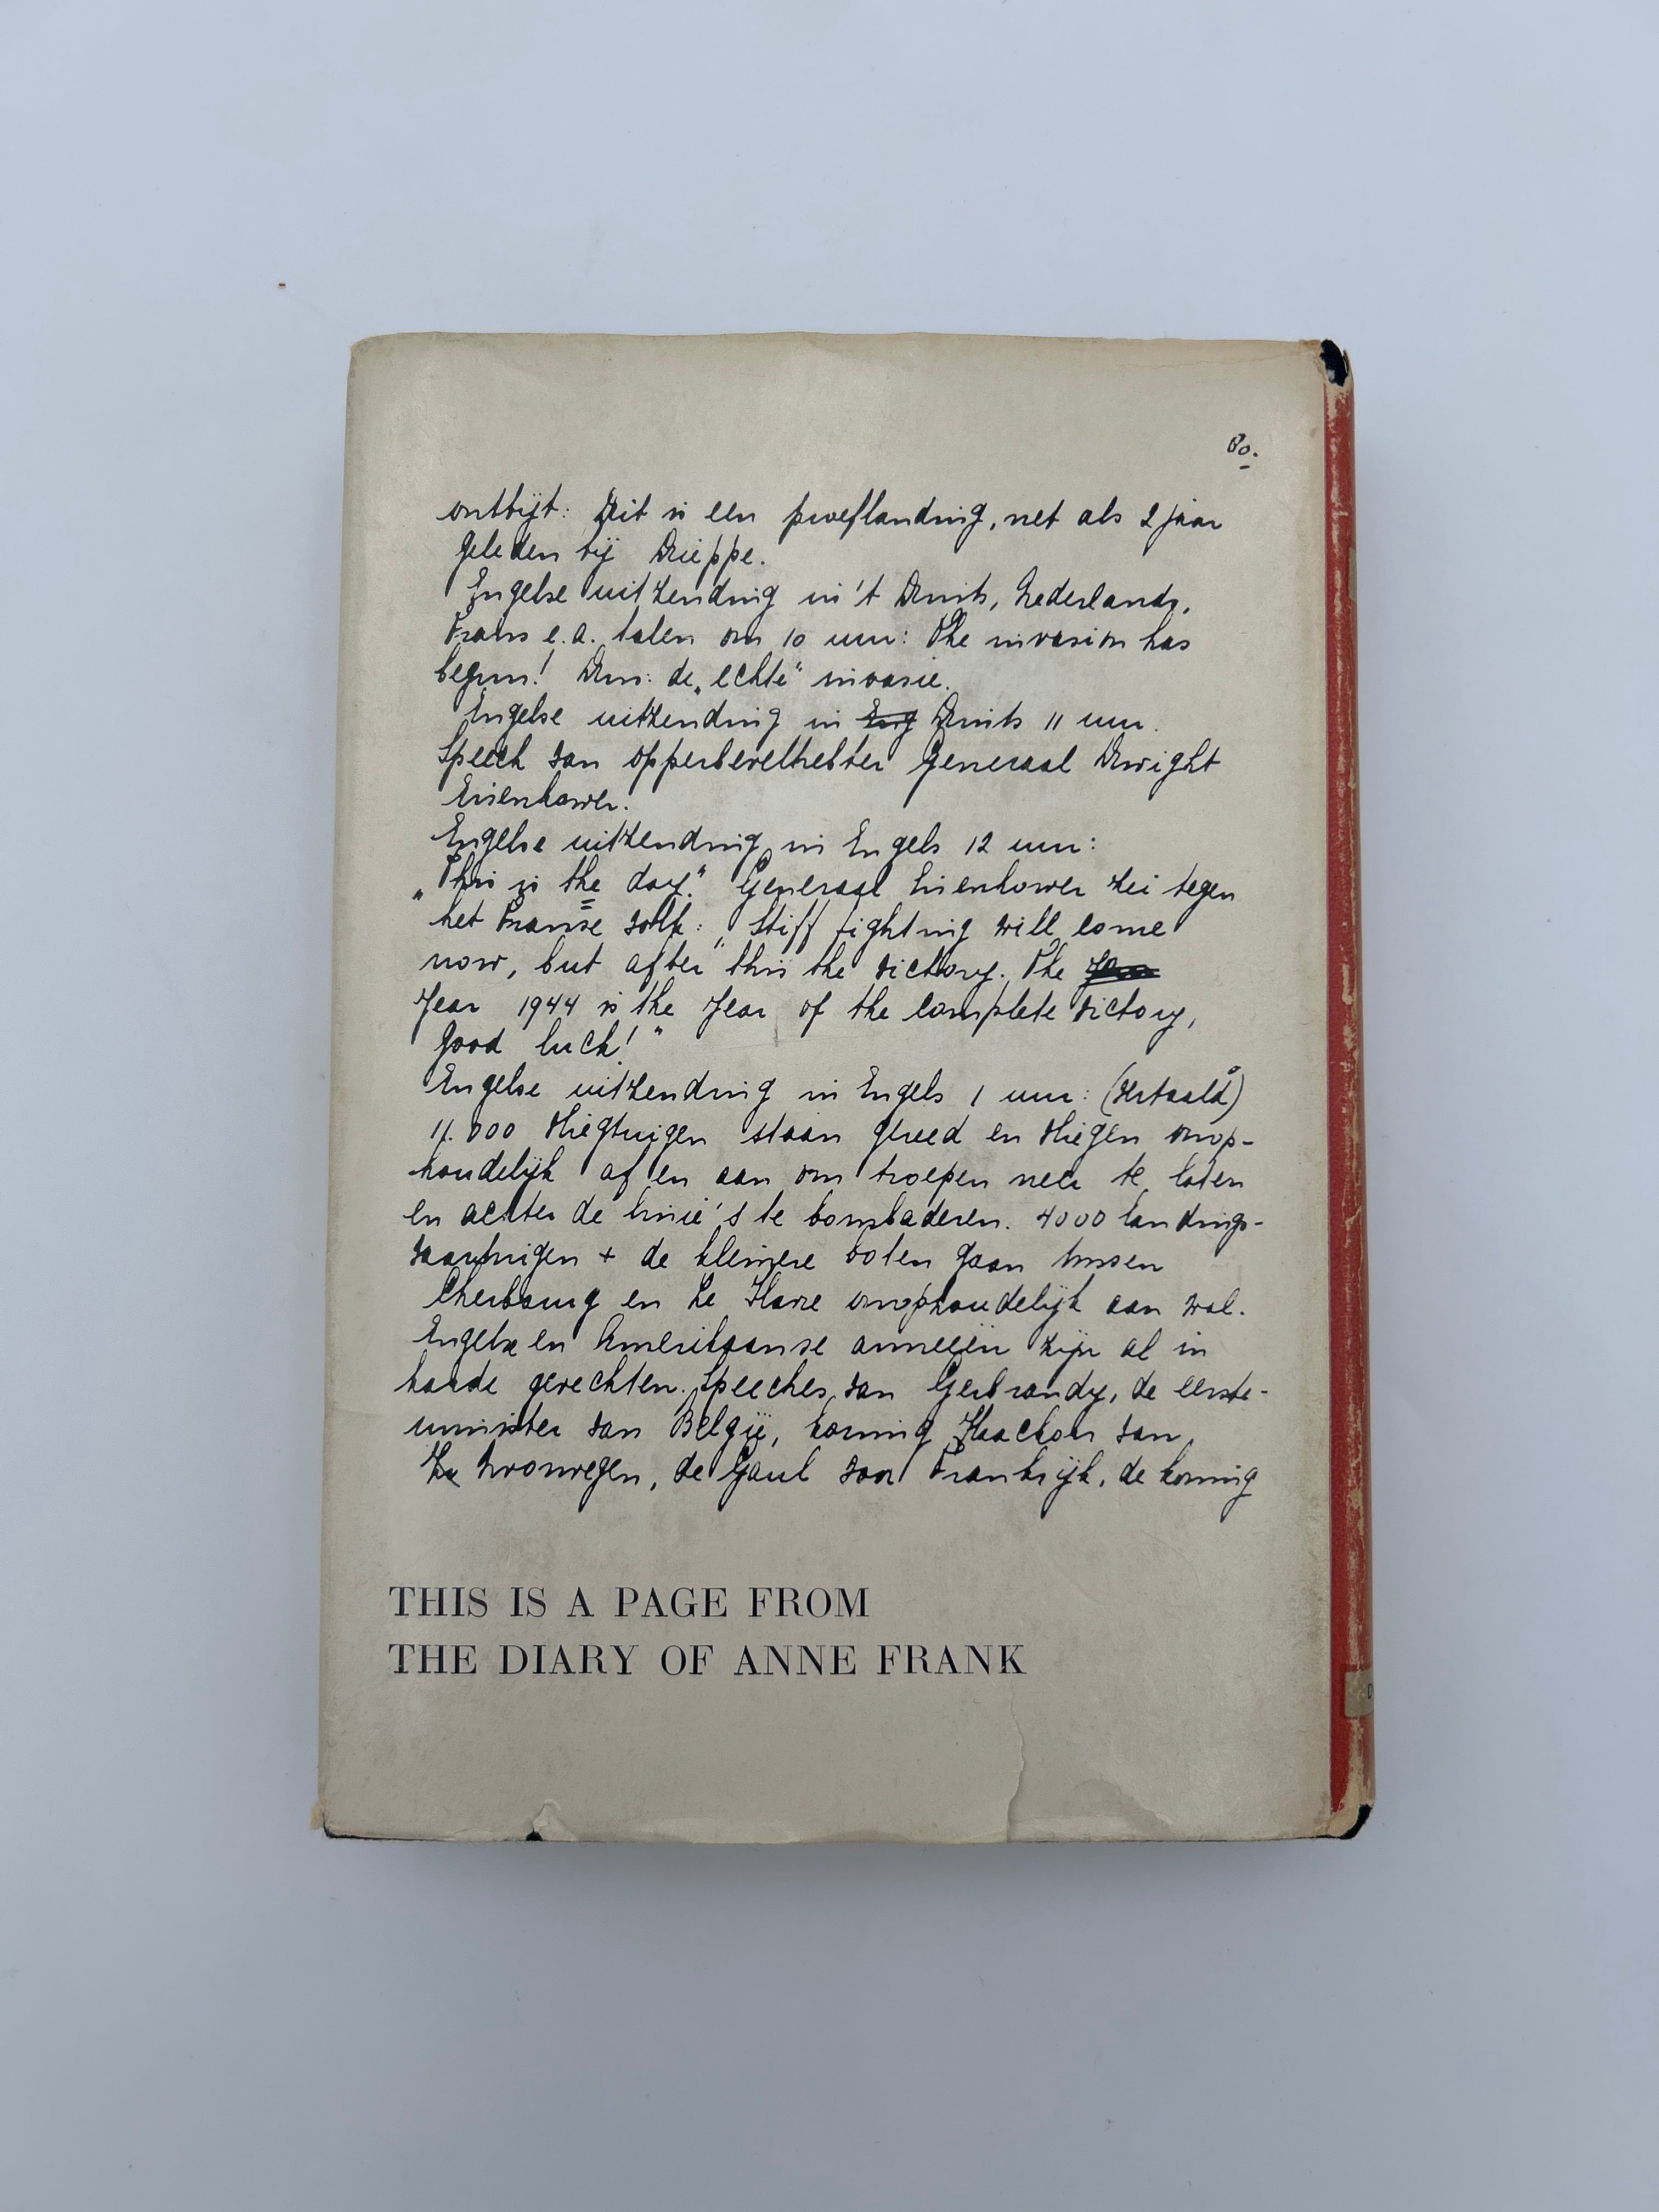 80.
ontbijt: Dit is een proeflanding, net als 2 jaar
geleden bij Dieppe.
Engelse uitzending in 't Duits, Nederlands,
Frans e.a. talen om 10 uur: The invasion has
begun! Dus: de „echte" invasie.
Engelse uitzending in Eng Duits 11 uur.
Speech van opperbevelhebber Generaal Dwight
Eisenhower.
Engelse uitzending in Engels 12 uur:
„This is the day." Generaal Eisenhower zei tegen
het Franse volk: „Stiff fighting will come
now, but after this the victory. The
Year 1944 is the Year of the complete victory,
good luck!"
Engelse uitzending in Engels 1 uur: (vertaald)
11.000 vliegtuigen staan gereed en vliegen onop-
houdelijk af en aan om troepen neer te laten
en achter de linie's te bombaderen. 4000 landings-
vaartuigen + de kleinere boten gaan tussen
Cherbourg en Le Havre onophoudelijk aan wal.
Engelse en Amerikaanse armeeën zijn al in
harde gevechten. Speeches van Gerbrandy, de eerste-
minister van België, koning Haackon van
Noorwegen, de Gaul voor Frankrijk, de koning
THIS IS A PAGE FROM
THE DIARY OF ANNE FRANK
D